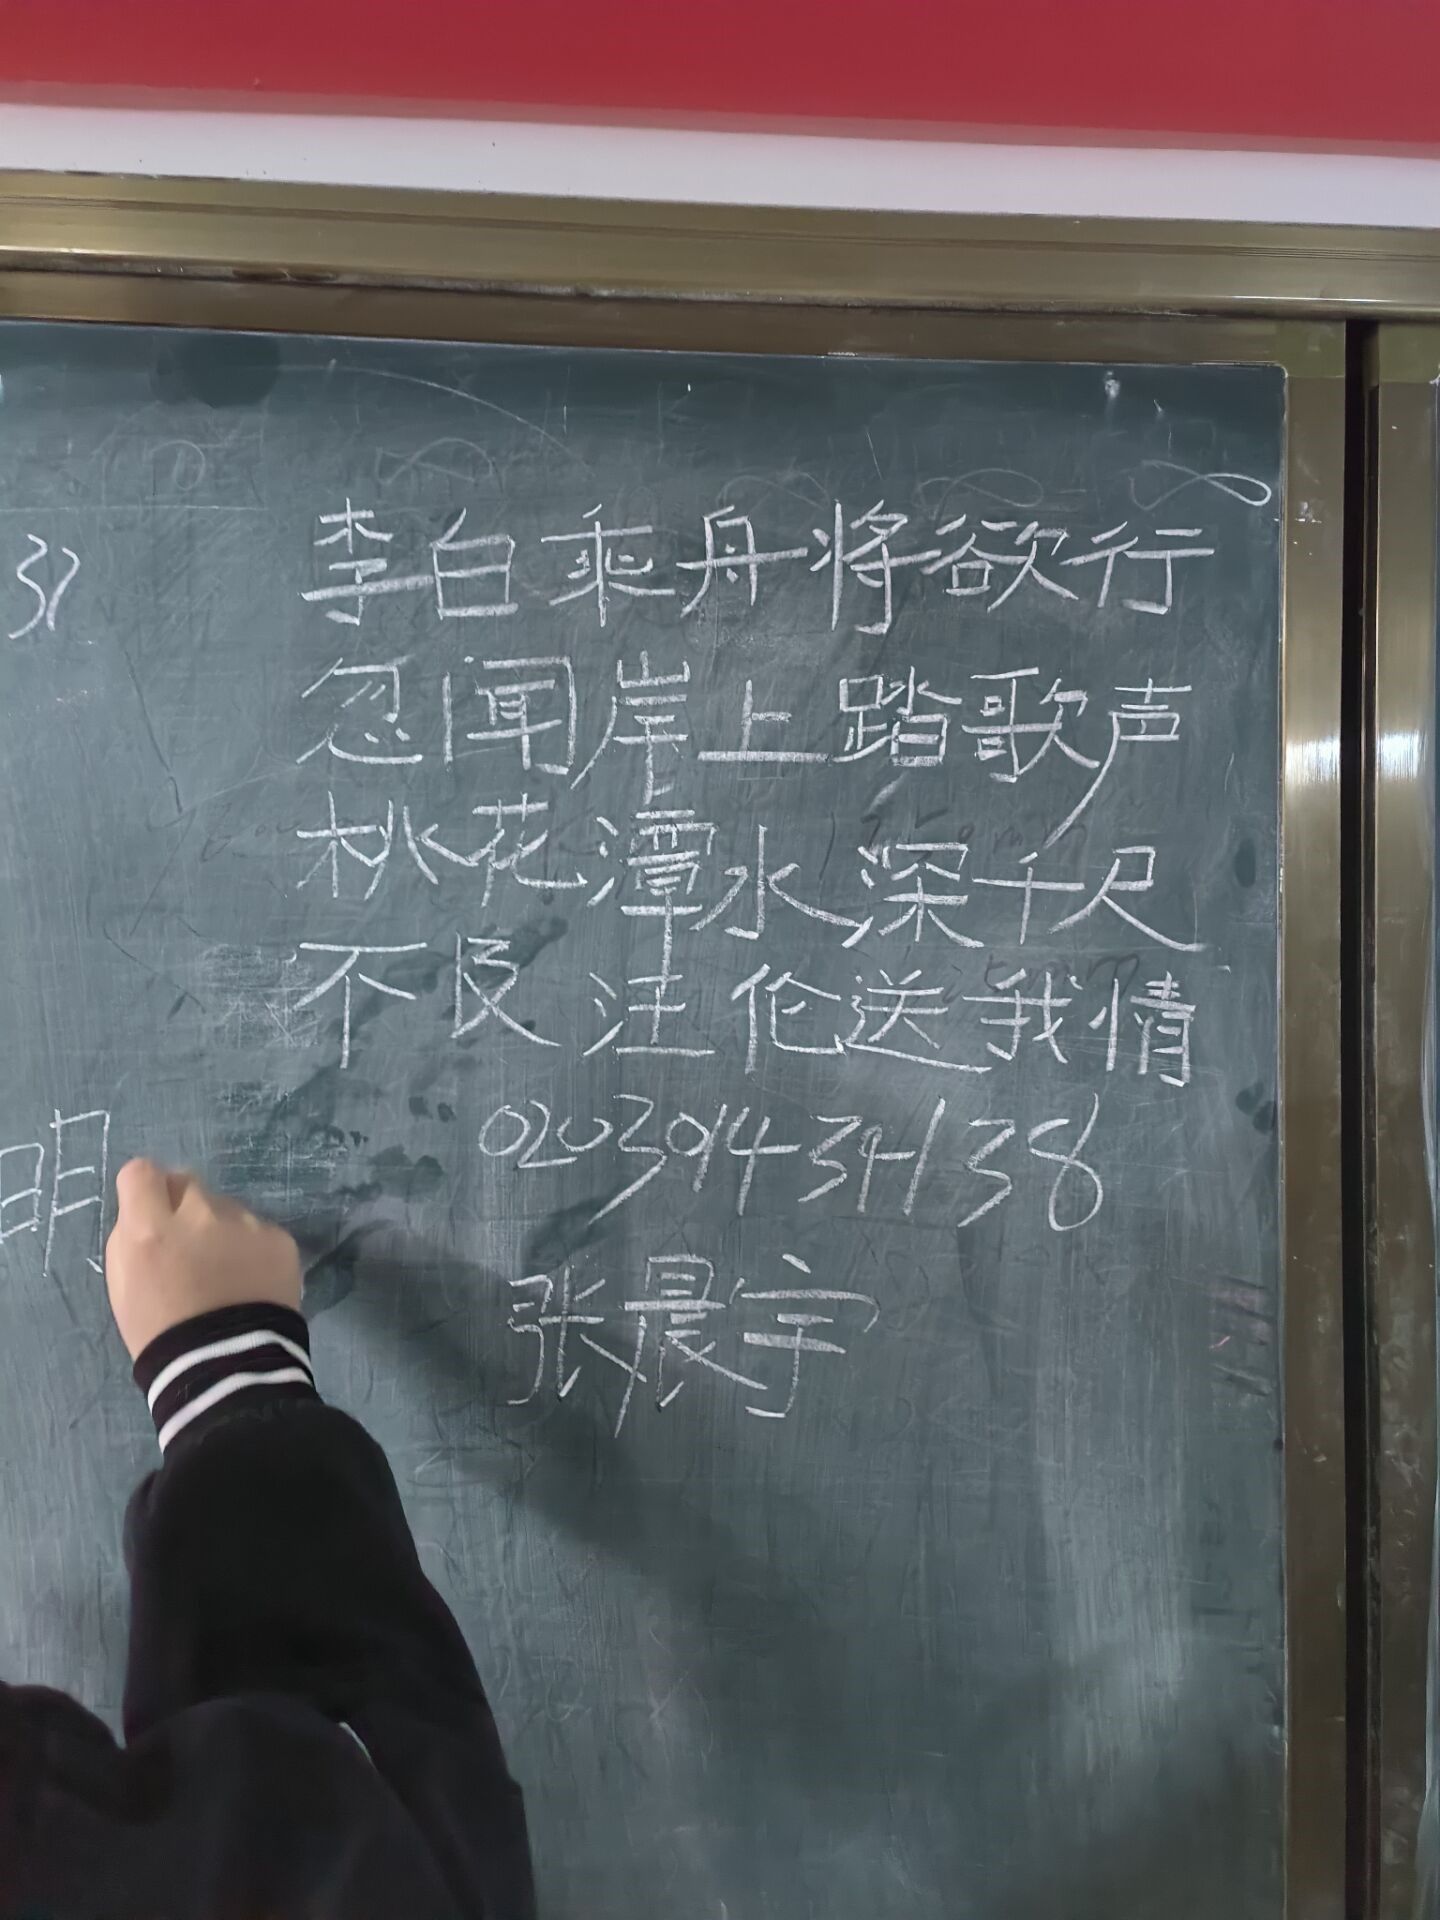 李白乘舟将欲行
忽闻岸上踏歌声
桃花潭水深千尺
不及汪伦送我情
020309143438
张晨宇
明